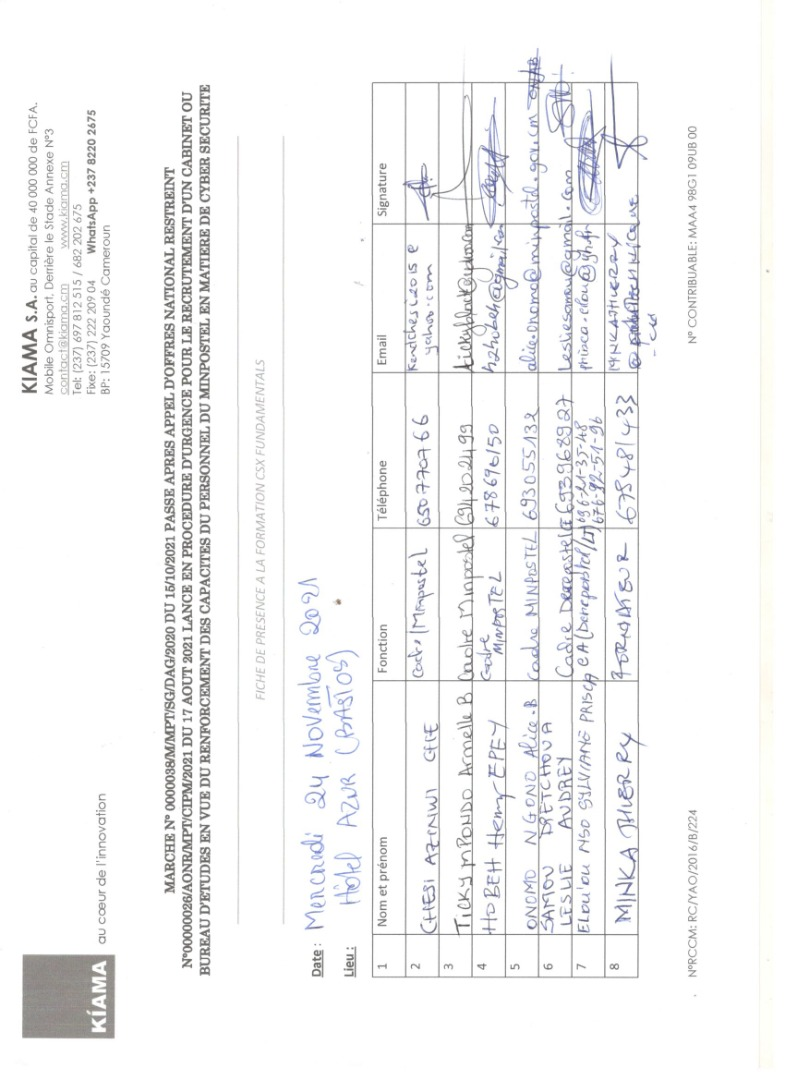 KIAMA
au cœur de l'innovation
KIAMA S.A. au capital de 40 000 000 de FCFA.
Mobile Omnisport, Derrière le Stade Annexe N°3
contact@kiama.cm www.kiama.cm
Tel: (237) 697 812 515 / 682 202 675
Fixe: (237) 222 209 04 WhatsApp +237 8220 2675
BP: 15709 Yaoundé Cameroun
MARCHE N° 0000038/M/MPT/SG/DAG/2020 DU 15/10/2021 PASSE APRES APPEL D'OFFRES NATIONAL RESTREINT
N°00000026/AONR/MPT/CIPM/2021 DU 17 AOUT 2021 LANCE EN PROCEDURE D'URGENCE POUR LE RECRUTEMENT D'UN CABINET OU
BUREAU D'ETUDES EN VUE DU RENFORCEMENT DES CAPACITES DU PERSONNEL DU MINPOSTEL EN MATIERE DE CYBER SECURITE
FICHE DE PRESENCE A LA FORMATION CSX FUNDAMENTALS
Date : Mercredi 24 Novembre 2021
Lieu : Hôtel AZUR (BASTOS)
1 Nom et prénom Fonction Téléphone Email Signature
2 CHESI AZINWI Cadre/Minpostel 650770766
yahoo.com
3 TICKY MPONDO Armelle B Cadre Minpostel 694202499
4 HOBEH Henry EPEY Cadre MINPOSTEL 678690150
5 ONOMO NGONO Alice.B Cadre MINPOSTEL 693055132 alice.onomo@minpostel.gov.cm
6 SAMOU DRETCHOUA
LESLIE AUDREY Cadre 693968927 Lesliesamou@gmail.com
7 NSO SYLVIANE PRISCA CA 696-21-35-48
676-92-51-96
8 MINKA THIERRY FORMATEUR 675481433
N°RCCM: RC/YAO/2016/B/224 N° CONTRIBUABLE: MAA4 98G1 09UB 00